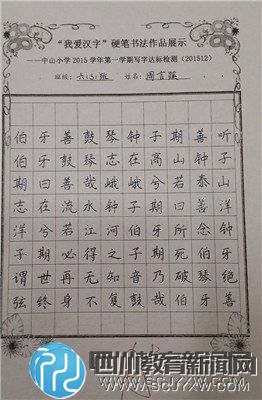 “我爱汉字”硬笔书法作品展示
——中山小学2015学年第一学期写字达标检测（201512）
班级：六(3)班 姓名：周言蹊
伯牙善鼓琴钟子期善听
伯牙鼓琴志在高山钟子
期曰善哉峨峨兮若泰山
志在流水钟子期曰善哉洋
洋兮若江河伯牙所念钟
子期必得之子期死伯牙
谓世再无知音乃破琴绝
弦终身不复鼓哉伯牙善
四川教育新闻网
WWW.SCJYXW.COM